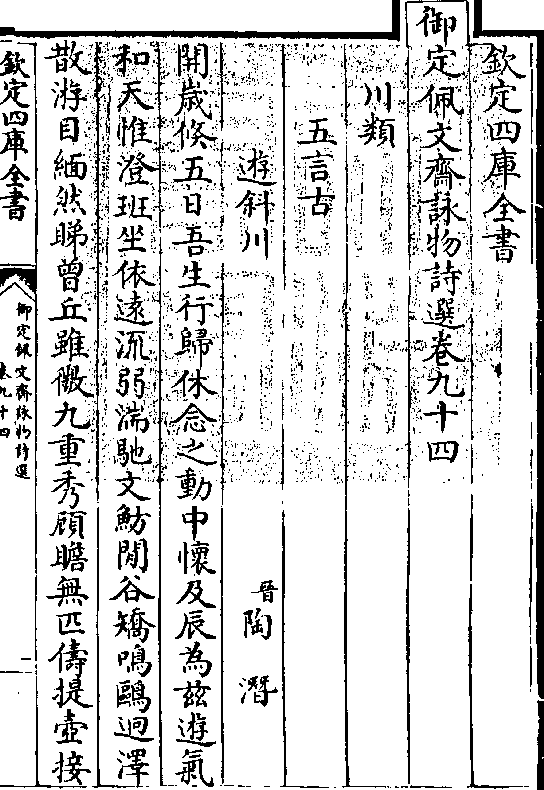 欽定四庫全書
御定佩文齋詠物詩選卷九十四
川類
五言古
遊斜川 晉陶潛
開歲倐五日吾生行歸休念之動中懷及辰為兹遊氣
和天惟澄班坐依遠流弱湍馳文魴閒谷矯鳴鷗迥澤
散游目緬然睇曾丘雖微九重秀顧瞻無匹儔提壺接
欽定四庫全書
御定佩文齋詠物詩選
卷九十四
一